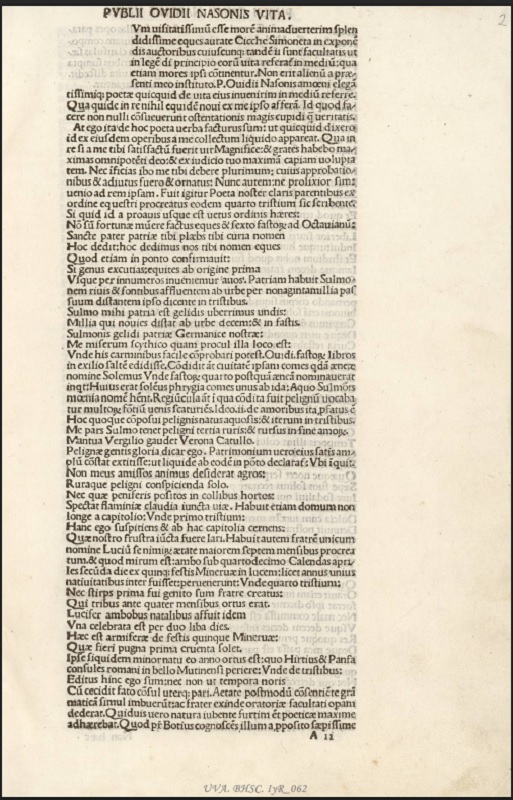 PVBLII OVIDII NASONIS VITA.
2
Vm usitatissimū esse morē animaduerterim splen
didissime eques aurate Cicche Simoneta in exponē
dis auctoribus cuiuscunqꝫ tandē ii sunt facultatis ut
in lege di principio eorū uita referat̄ in mediū: qua
etiam mores ipsi cōtinentur. Non erit alienū a præ
senti meo instituto. P. Ouidii Nasonis amœni elegā
tissimiqꝫ poetæ quicquid de uita eius inuenirim in mediū referre.
Qua quide in re nihil equidē noui ex me ipso afferā. Id quod fa
cere non nulli cōsueuerunt ostentationis magis cupidi qꝫ ueritatis.
At ego ita de hoc poeta uerba facturus sum: ut quicquid dixero
id ex eiusdem operibus a me collectum liquido appareat. Qua in
re si a me tibi satisfactū fuerit uir Magnifice: & grates habebo ma
ximas omnipotēti deo: & ex iudicio tuo maximā capiam uolupta
tem. Nec īficias ibo me tibi debere plurimum: cuius approbatio
nibus & adiutus fuero & ornatus: Nunc autem: ne prolixior sim:
uenio ad rem ipsam. Fuit igitur Poeta noster claris parentibus ex
ordine equestri procreatus eodem quarto tristium sic scribente:
Si quid id a proauis usque est uetus ordinis hæres:
Nō sū fortunæ mūere factus eques & sexto fastoꝝ ad Octauianū:
Sancte pater patriæ tibi plæbs tibi curia nomen
Hoc dedit: hoc dedimus nos tibi nomen eques
Quod etiam in ponto confirmauit:
Si genus excutias: equites ab origine prima
Vsque per innumeros inuenientur auos. Patriam habuit Sulmo
nem riuis & fontibus affluentem ab urbe per nonagintamillia pas
suum distantem ipso dicente in tristibus.
Sulmo mihi patria est gelidis uberrimus undis:
Millia qui nouies distat ab urbe decem: & in fastis.
Sulmonis gelidi patriæ Germanice nostræ:
Me miserum scythico quam procul illa loco est:
Vnde his carminibus facile cōprobari potest. Ouidi. fastoꝝ libros
in exilio saltē edidisse. Cōdidit āt ciuitatē ipsam comes qdā æneæ
nomine Solemus Vnde fastoꝝ quarto postquā æneā nominauerat
inqt: Huius erat solēus phrygia comes unus ab ida: Aquo Sulmōis
mœnia nomē hēnt. Regiūcula āt ī qua cōdita fuit pelignū uocabat̄
tur multoꝝ fōtiū uenis scaturiēs. Ideo. ii. de amoribus ita pfatus ē
Hoc quoque cōposui pelignis natus aquosis: & iterum in tristibus.
Me pars Sulmo tenet peligni tertia ruris: & rursus in fine amoꝝ.
Mantua Vergilio gaudet Verona Catullo.
Pelignæ gentis gloria dicar ego. Patrimonium uero eius satis am
plū cōstat extitisse: ut liquide ab eodē in pōto declarat̄: Vbi īquit:
Non meus amissos animus desiderat agros:
Ruraque peligni conspicienda solo.
Nec quæ peniferis positos in collibus hortos:
Spectat flaminiæ claudia iuncta uiæ. Habuit etiam domum non
longe a capitolio: Vnde primo tristium:
Hanc ego suspitiens & ab hac capitolia cernens:
Quæ nostro frustra iūcta fuere lari. Habuit autem fratrē unicum
nomine Luciū se nimiꝝ ætate maiorem septem mensibus procrea
tum. & quod mirum est: ambo sub quartodecimo Calendas apri
les secūda die ex quinqꝫ festis Mineruæ in lucem: licet annus unius
natiuitatibus inter fuisset: peruenerunt: Vnde quarto tristium:
Nec stirps prima fui genito sum fratre creatus:
Qui tribus ante quater mensibus ortus erat.
Lucifer ambobus natalibus affuit idem
Vna celebrata est per duo liba dies.
Hæc est armiferæ de festis quinque Mineruæ:
Quæ fieri pugna prima cruenta solet.
Ipse siquidem minor natu eo anno ortus est: quo Hirtius & Pansa
consules romani in bello Mutinensi periere: Vnde de tristibus:
Editus hinc ego sum: nec non ut tempora noris
Cū cecidit fato cōsul uterqꝫ pari. Aetate postmodū cōsentiēte grā
matica simul imbuerūt: ac frater exinde oratoriæ facultati opam
dederat. Quiduis uero natura iubente furtim et̄ poeticæ maxime
adhærebat. Quod pr̄ Botius cognoscēs, illum a pposito sæpissime
A ii
UVA. BHSC. IyR_062